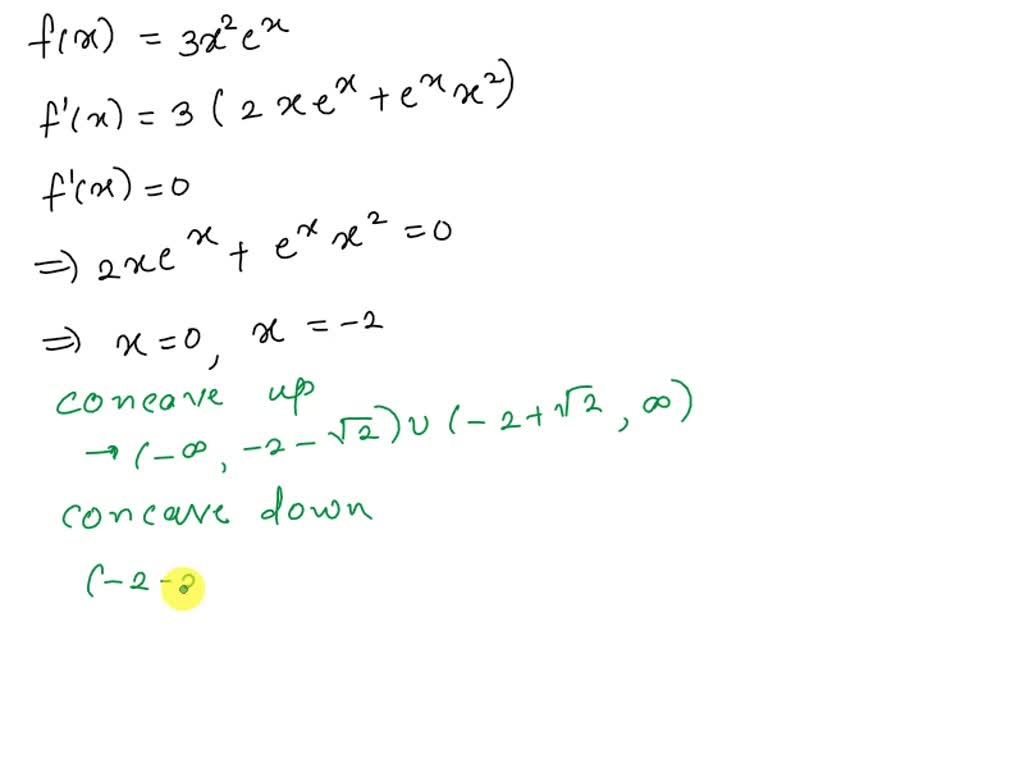 f(x) = 3x²eˣ
f'(x) = 3 ( 2xeˣ + eˣx²)
f'(x) = 0
⇒ 2xeˣ + eˣx² = 0
⇒ x = 0, x = -2
concave up
→ (-∞, -2-√2) ∪ (-2+√2, ∞)
concave down
(-2-